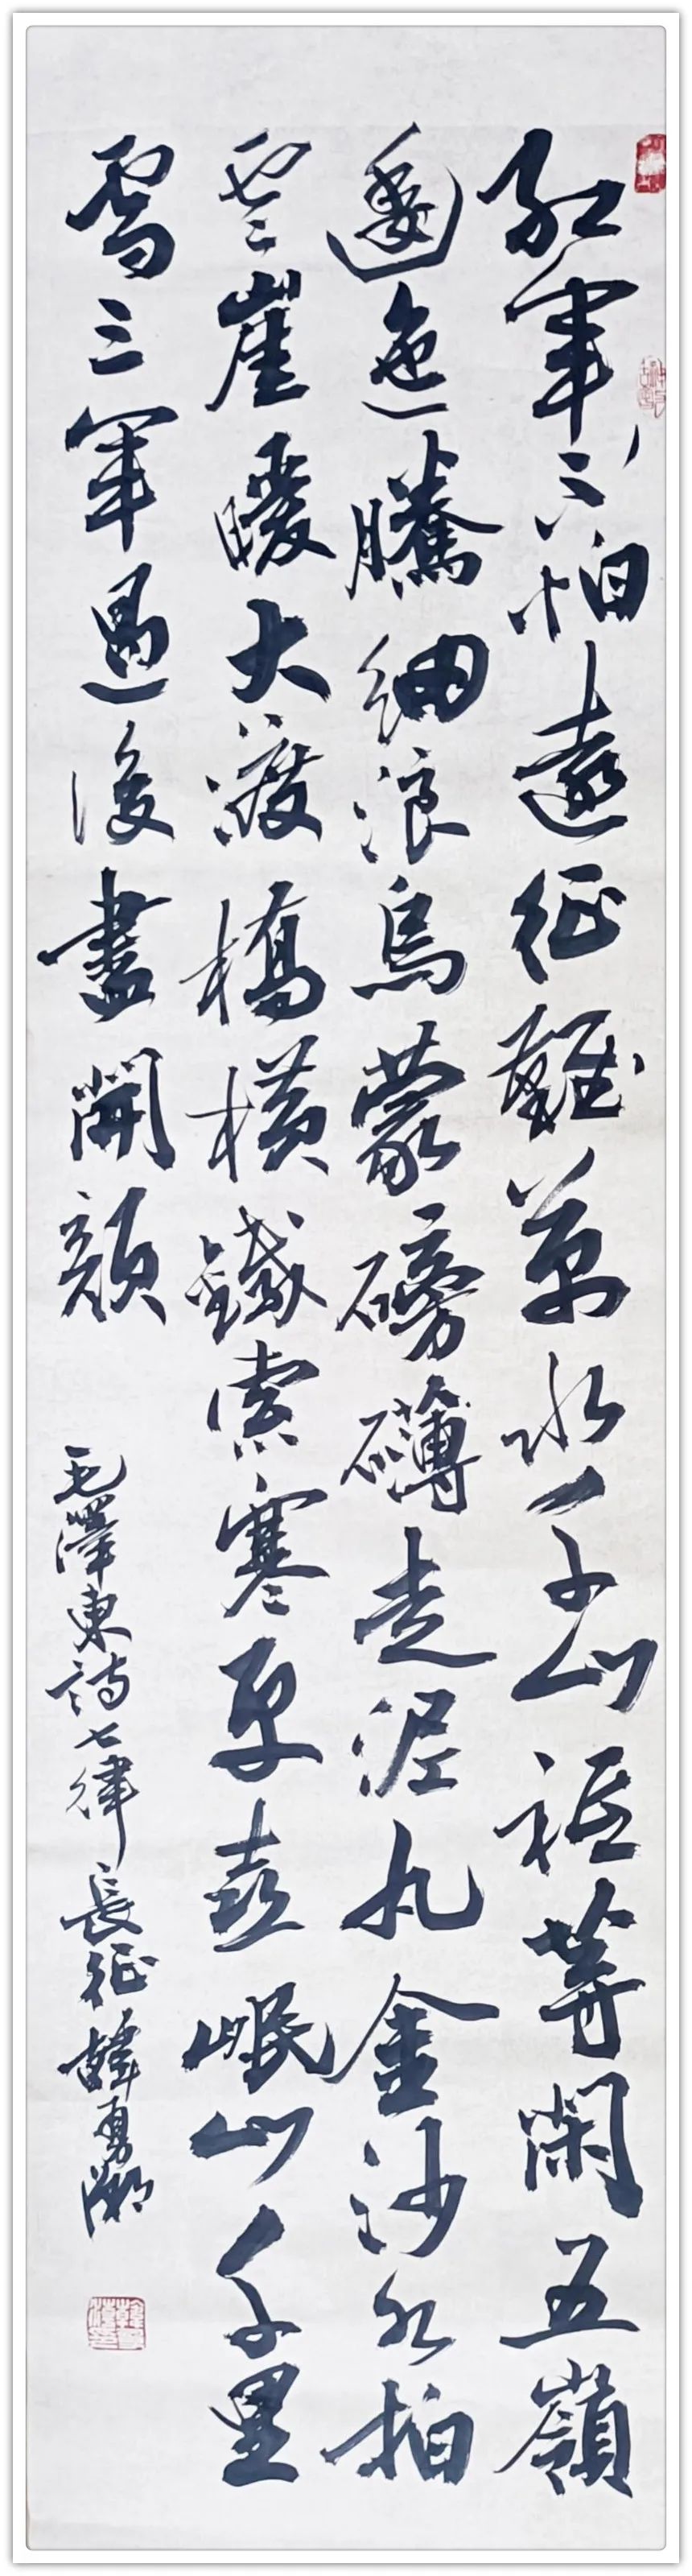 紅軍不怕遠征難萬水千山祗等閑五嶺
逶迤騰細浪烏蒙磅礴走泥丸金沙水拍
雲崖暖大渡橋橫鐵索寒更喜岷山千里
雪三軍過後盡開顏
毛澤東詩七律長征韓勇